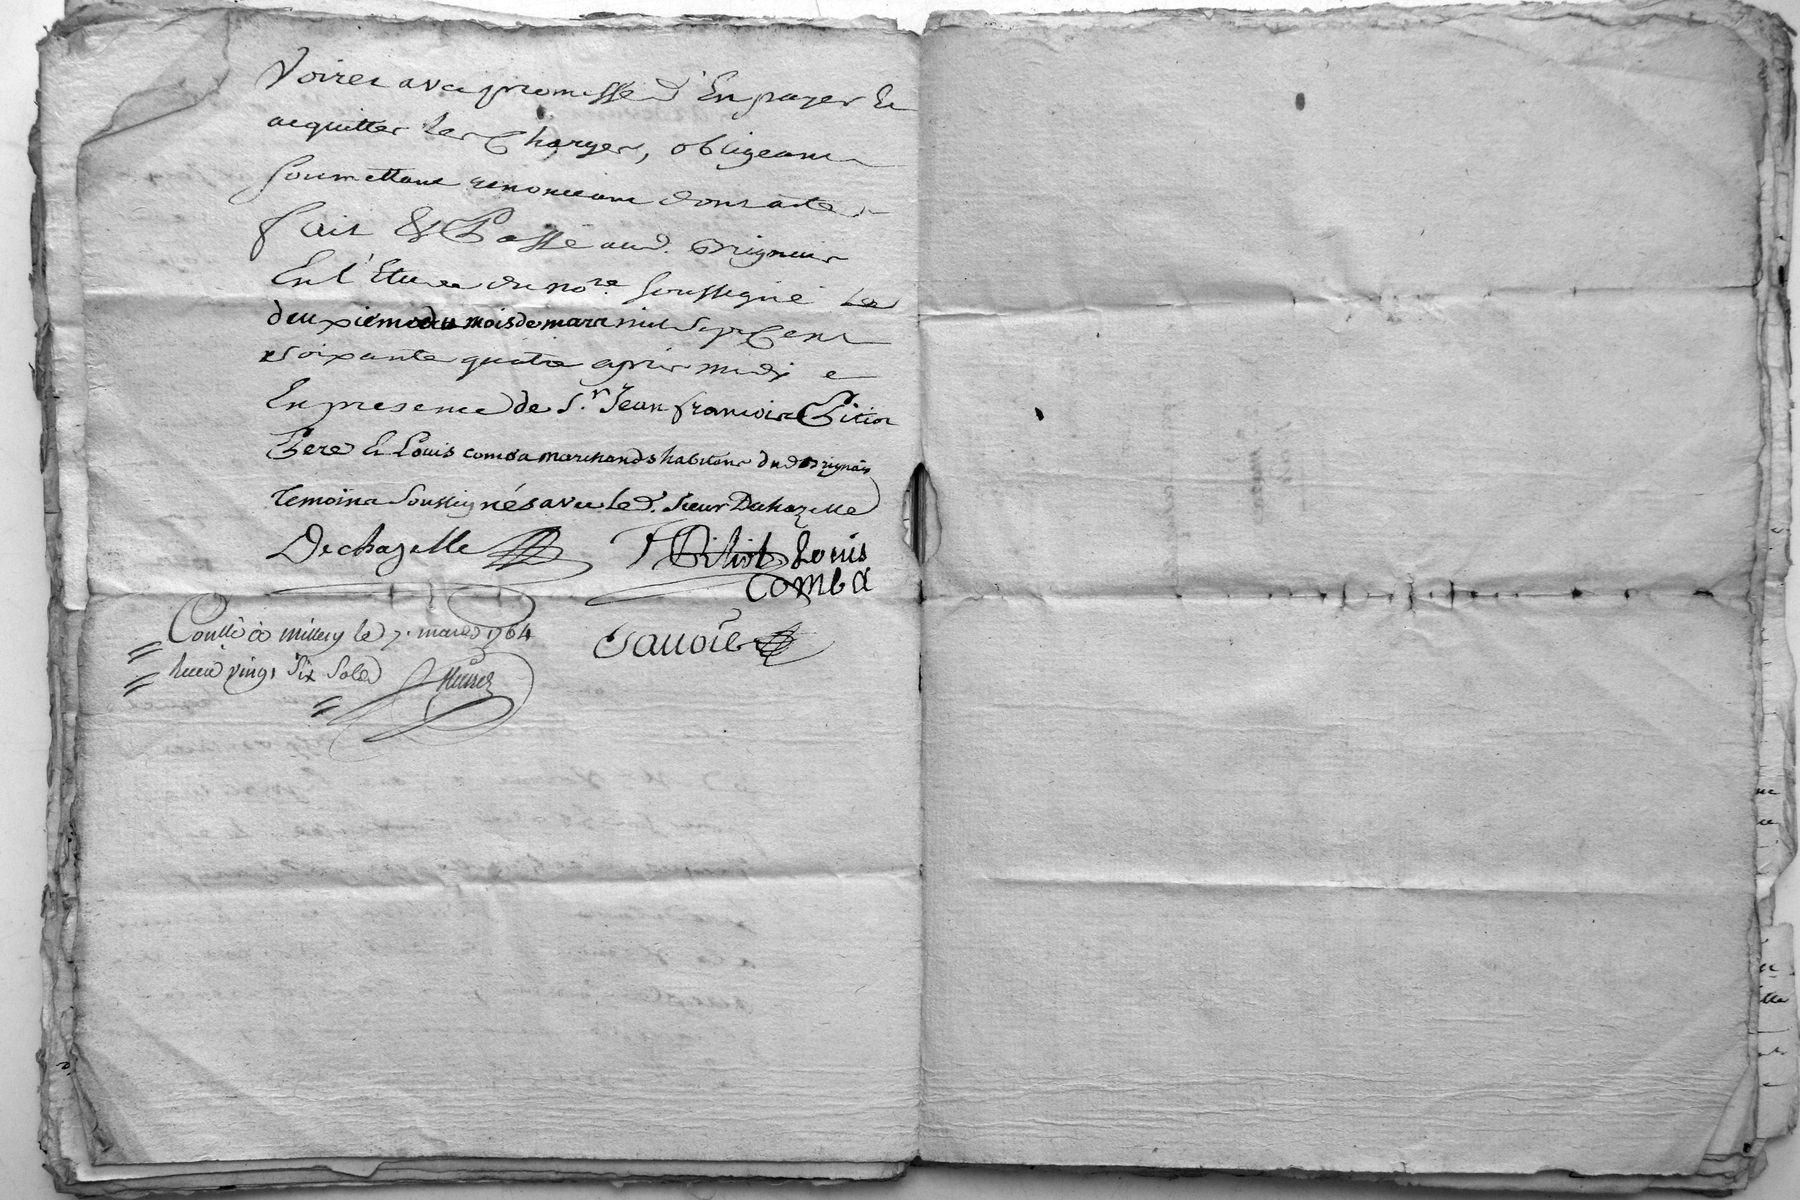 Voires avec promesse d'En payer Et
acquitter les Charges, obligeant
soumettant renonceant dont acte
fait & Passé aud. Brignais
En l'Etude du no.re soussigné Le
deuxieme du mois de mars mil sept Cent
soixante quatre apres midy e
En presence de S.r Jean francois Pitiot
Pere Et Louis comba marchands habitans dud Brignais
temoins soussignés avec le d. sieur Dechazelle
Dechazelle Pitiot Louis
Comba
Conllé a millery le 7. mars 1764
Receu vingt six sols